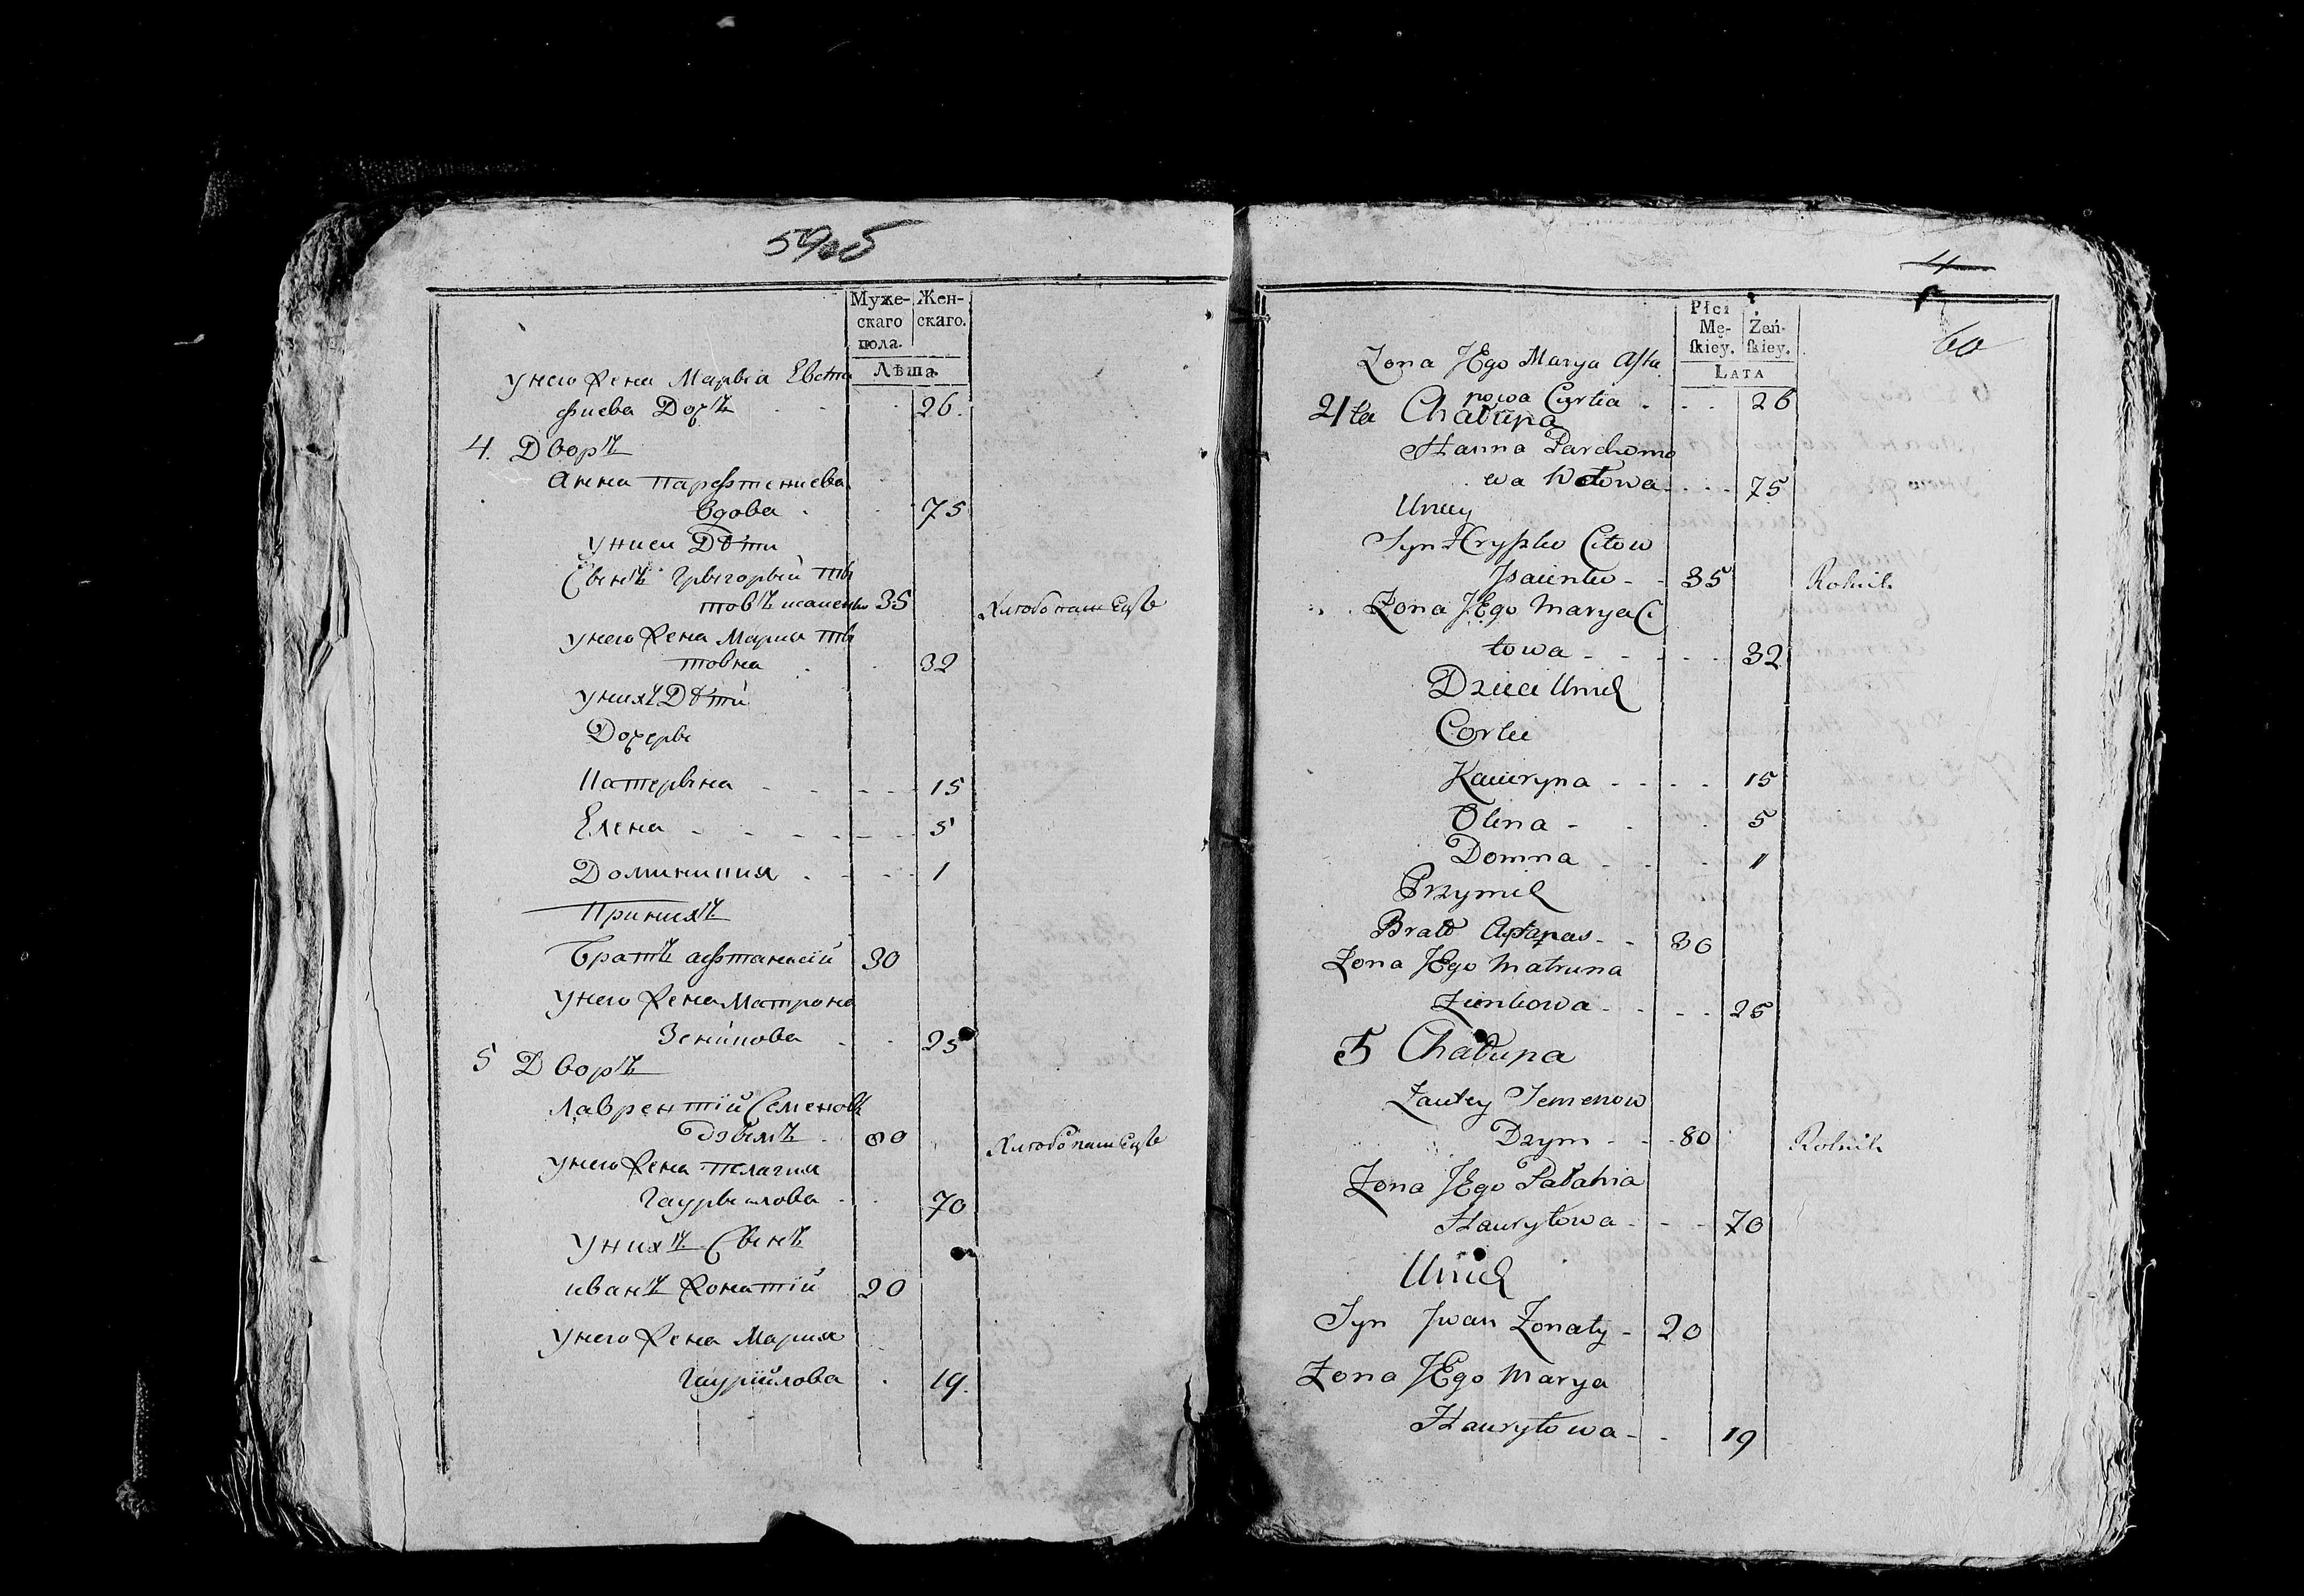 59об
Муже- Жен-
скаго скаго.
пола.
Лѣта
унего жена Марыа Евста
фиева Дочъ 26.
4. Дворъ
Анна парфтениева
вдова 75
унией Дѣти
Сынъ Грыгорый ты
товъ 35 Хлѣбопашецъ
унего жена Мария ты
товна 32
унихъ Дѣти
Дочеры
Катерына 15
Елена 5
Доминикия 1
При нихъ
братъ афтанасій 30
унего жена Матрона
Зенкова 25
5 Дворъ
лаврентій Семеновъ
Дзымъ 80 Хлѣбопашецъ
унего жена пелагия
Гаурылова 70
унихъ Сынъ
иванъ жонатій 20
унего жена Мария
Гаурійлова 19.
4
60
Płci
Mę- Żeń-
ſkiey. ſkiey.
Lata
Żona JEgo Marya Asta
powa Corka 26
4ta Chałupa
Hanna Parchomo
wa Wdowa 75
Uniey
Syn Hryszko Citow
35 Rolnik
Żona JEgo Marya Ci
towa 32
Dzieci Unich
Corki
Kateryna 15
Olena 5
Domna 1
Przynich
Brat Apanas 30
Żona JEgo Matruna
Zienkowa 25
5 Chałupa
Ławrey Semenow
Dzym 80 Rolnik
Żona JEgo Pałahia
Hauryłowa 70
Unich
Syn Jwan Żonaty 20
Żona JEgo Marya
Hauryłowa 19